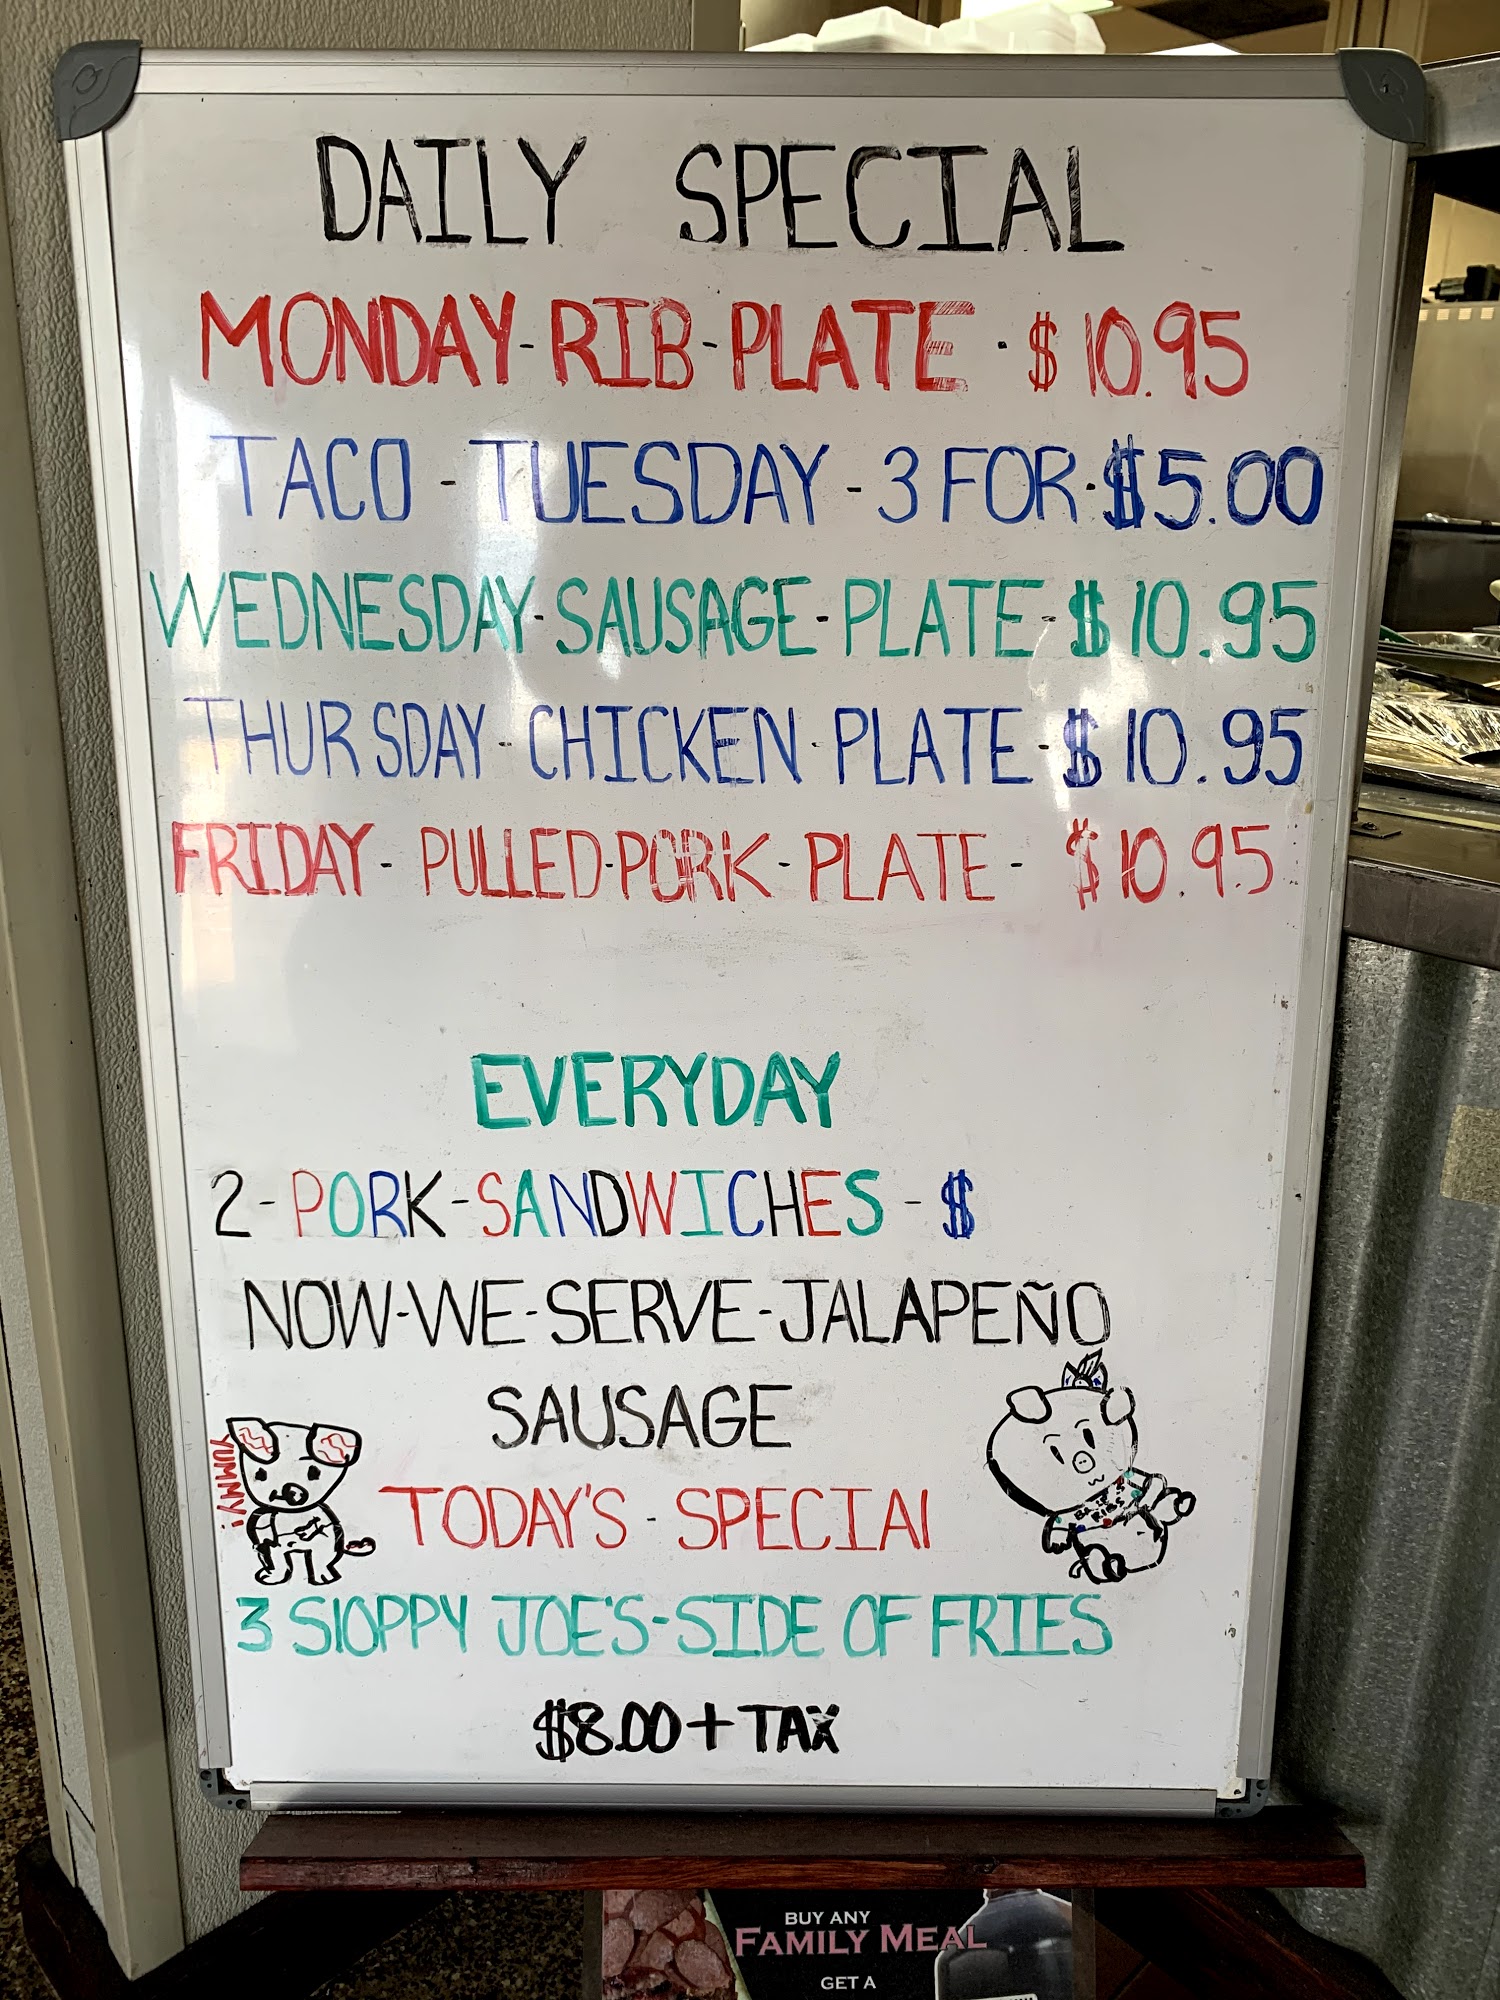 DAILY SPECIAL
MONDAY-RIB-PLATE - $10.95
TACO - TUESDAY - 3 FOR-$5.00
WEDNESDAY-SAUSAGE-PLATE-$10.95
THURSDAY-CHICKEN-PLATE-$10.95
FRIDAY-PULLED-PORK-PLATE-$10.95
EVERYDAY
2-PORK-SANDWICHES-$
NOW-WE-SERVE-JALAPEÑO
SAUSAGE
YUMMY!
TODAY'S-SPECIAl
3 SlOPPY JOE'S-SIDE OF FRIES
$8.00+TAX
BUY ANY
FAMILY MEAL
GET A